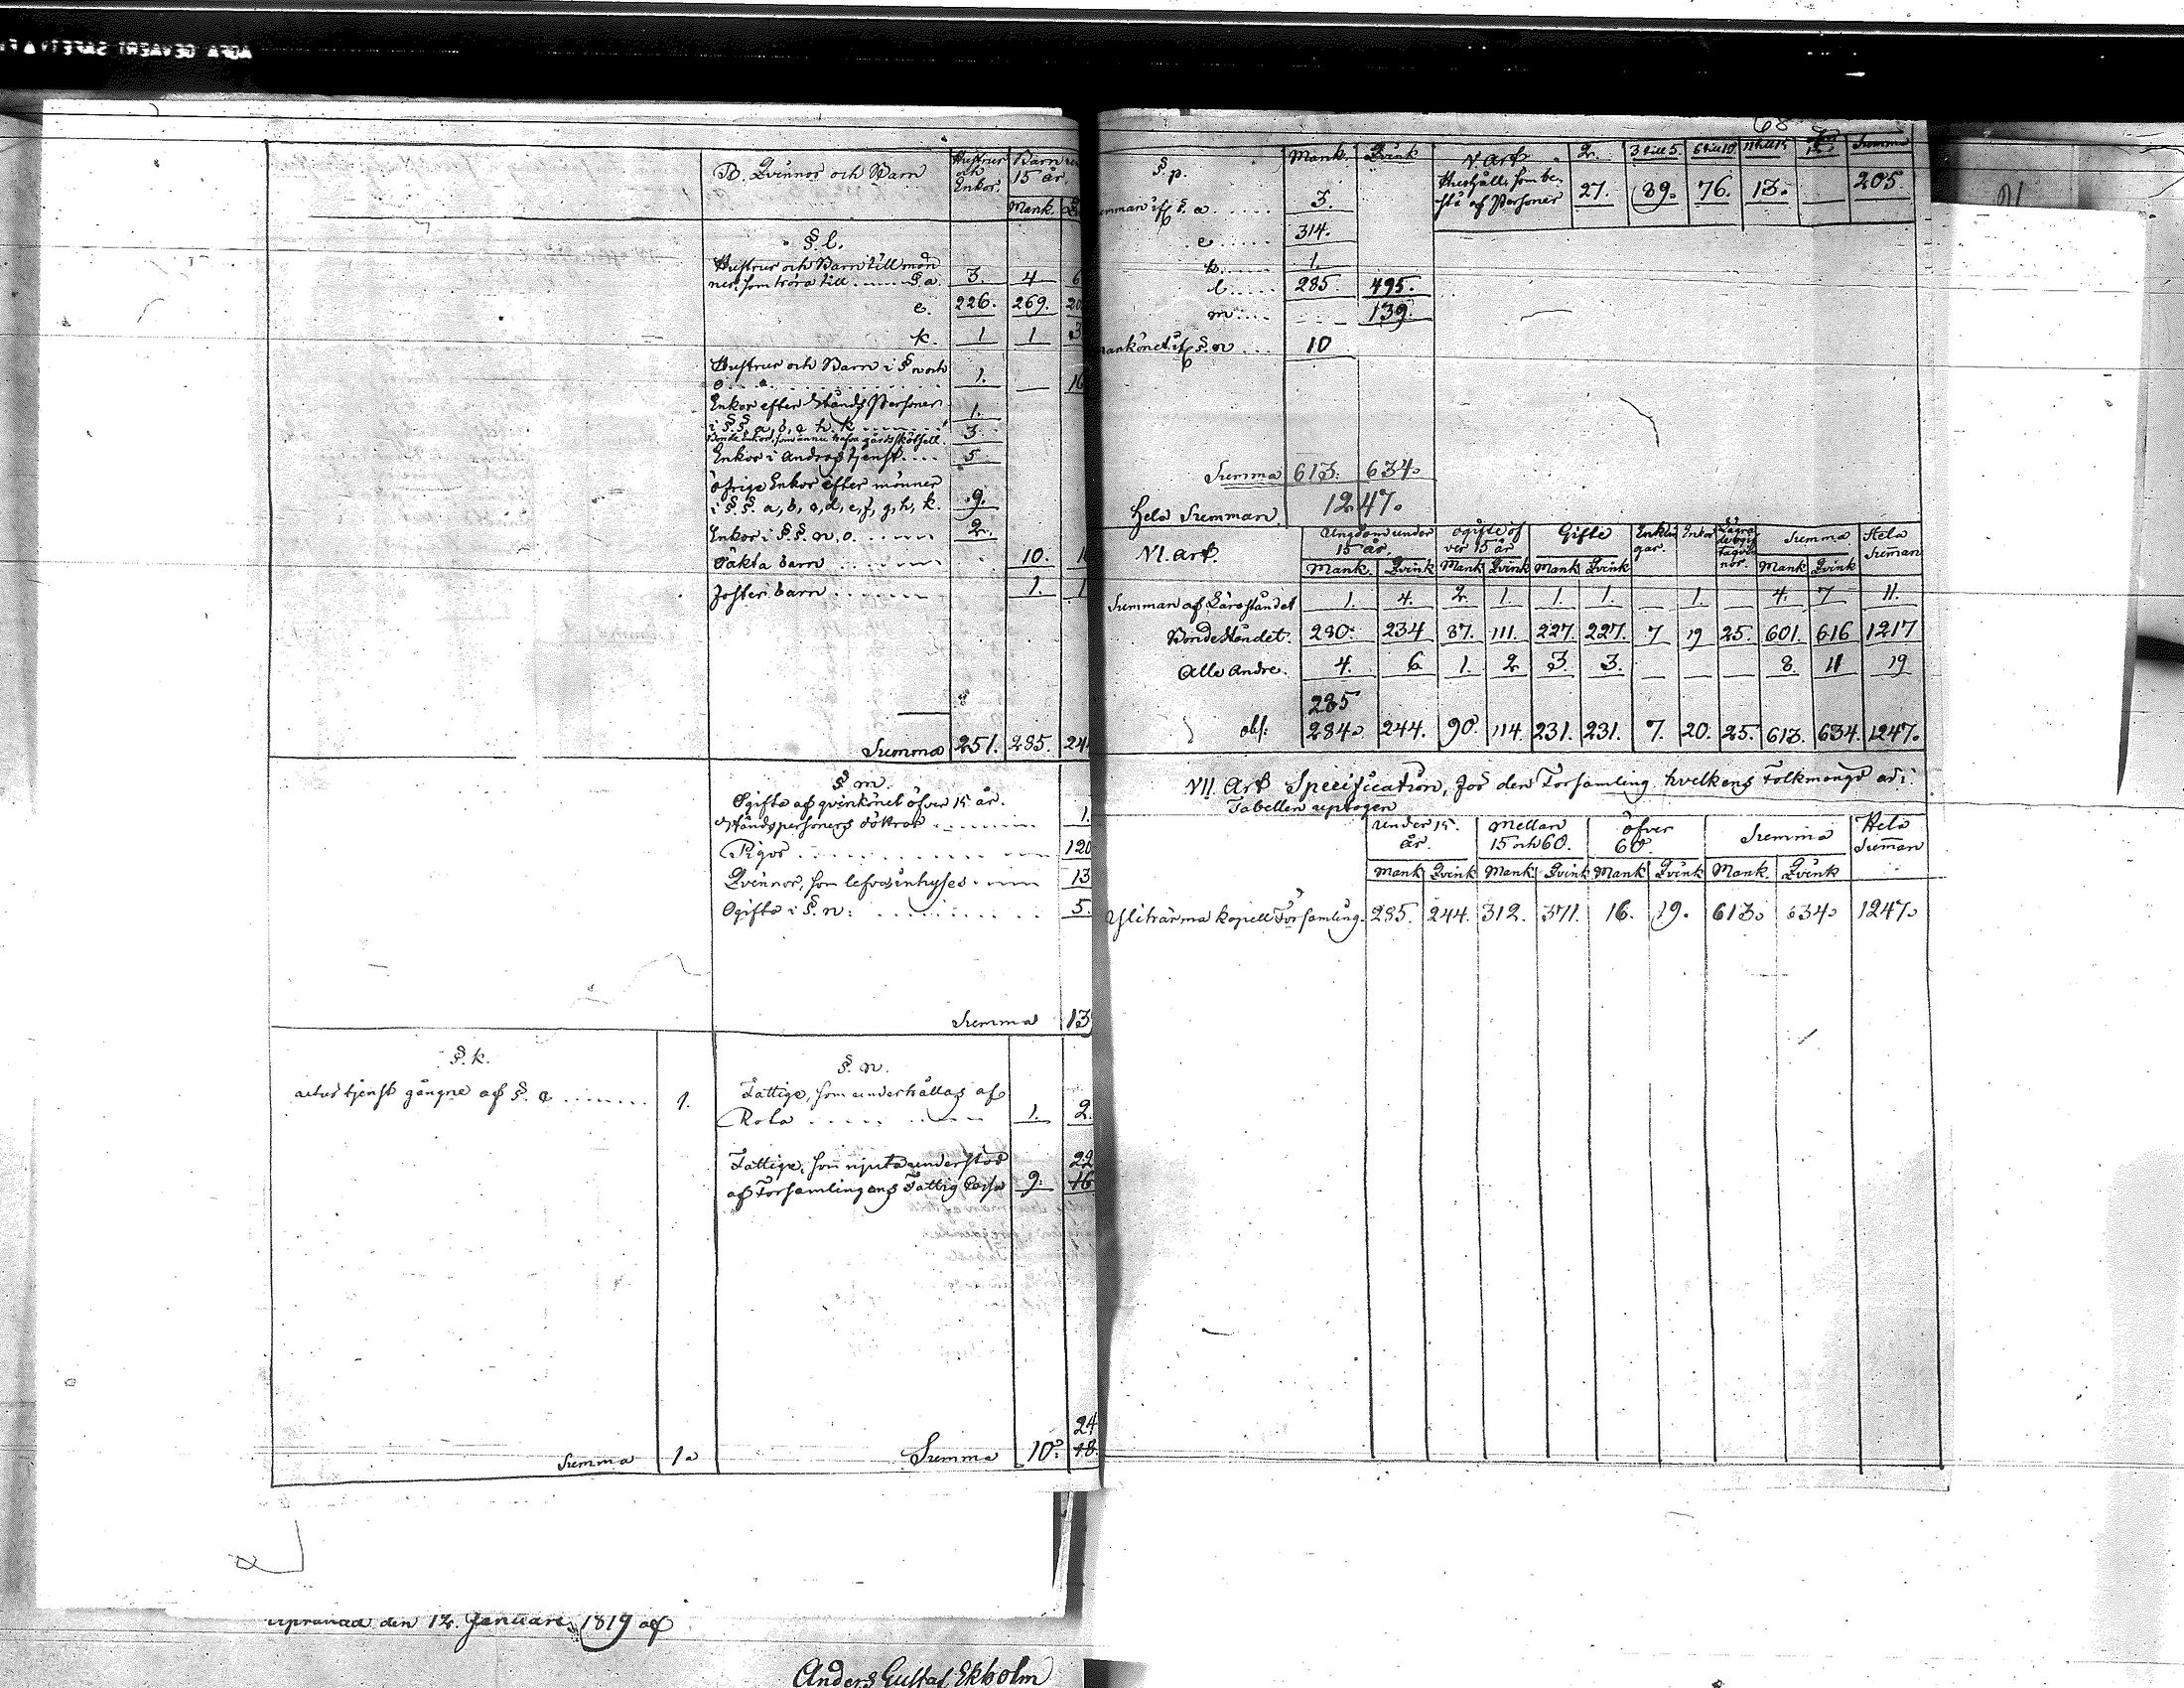 AGFA GEVAERT SAFETY
B. Qvinnor och Barn
Hustrur och Enkor.
Barn
15 år
Mank.
§. l.
Hustrur och Barn till män
ner som höra till .... §. a. 3. 4 6
e. 226. 269. 20
k. 1 1 3
Hustrur och Barn i §. n och
o . . . . 1. — 16
Enkor efter Stånds Personer
i §.§. a, b, e, h, k ...... 1.
Bonde Enkor, som ännu hafva gårdsskötsell. 3.
Enkor i andras tjenst .... 5
öfrige Enkor efter männer
i §.§. a, b, c, d, e, f, g, h, k. 9.
Enkor i §.§. n, o. ...... 2.
Oäkta barn ...... 10. 1
Foster barn ...... 1. 1
Summa 251. 285. 244
§ m.
Ogifta af qvinkönet öfver 15 år.
Ståndspersoners döttrar ...... 1.
Pigor ...... 120
Qvinnor, som lefva inhyses. 13
Ogifta i §. n: ...... 5.
Summa 13
§. k.
tjenst gångne af §. a ...... 1.
Summa 1.
§. n.
Fattige, som underhållas af
Rota ...... 1. 2.
Fattige, som njuta understöd 22
af Församlingens Fattig Cassa 9. 16
24
Summa 10. 18.
den 12. Januari 1819 af
Anders Gustaf Ekholm
68
§. p. Mank. Qvink
Summan uti §. a ..... 3.
e ..... 314.
k ..... 1.
l ..... 285. 495.
m .... — 139.
mankönet uti §. n ... 10
Summa 613. 634.
Hela Summan 1247.
V Art. 2. 3 till 5 6 till 10 11 till 15 Summa
Hushåll, som be-
stå af Personer 27. 89. 76. 13. — 205.
VI. Art. Ungdom under 15 år. Ogifte öfver 15 år Gifte Enklingar. Enkor Summa Hela Summan
Mank. Qvink Mank Qvink Mank Qvink Mank Qvink
Summan af Läroståndet 1. 4. 2. 1. 1. 1. — 1. — 4. 7 11.
Bonde Ståndet. 280. 234 87. 111. 227. 227. 7 19 25. 601. 616 1217
Alle Andre. 4. 6 1. 2 3. 3. — — — 8. 11 19
285
obs: 284. 244. 90. 114. 231. 231. 7. 20. 25. 613. 634. 1247.
VII. Art Specification, för den Församling hvilkens Folkmängd är i
Tabellen uptagen
Under 15. år. Mellan 15 och 60. öfver 60. Summa Hela Summan
Mank Qvink Mank Qvink Mank Qvink Mank. Qvink
Ylihärmä kapell Församling. 285. 244. 312. 371. 16. 19. 613. 634. 1247.